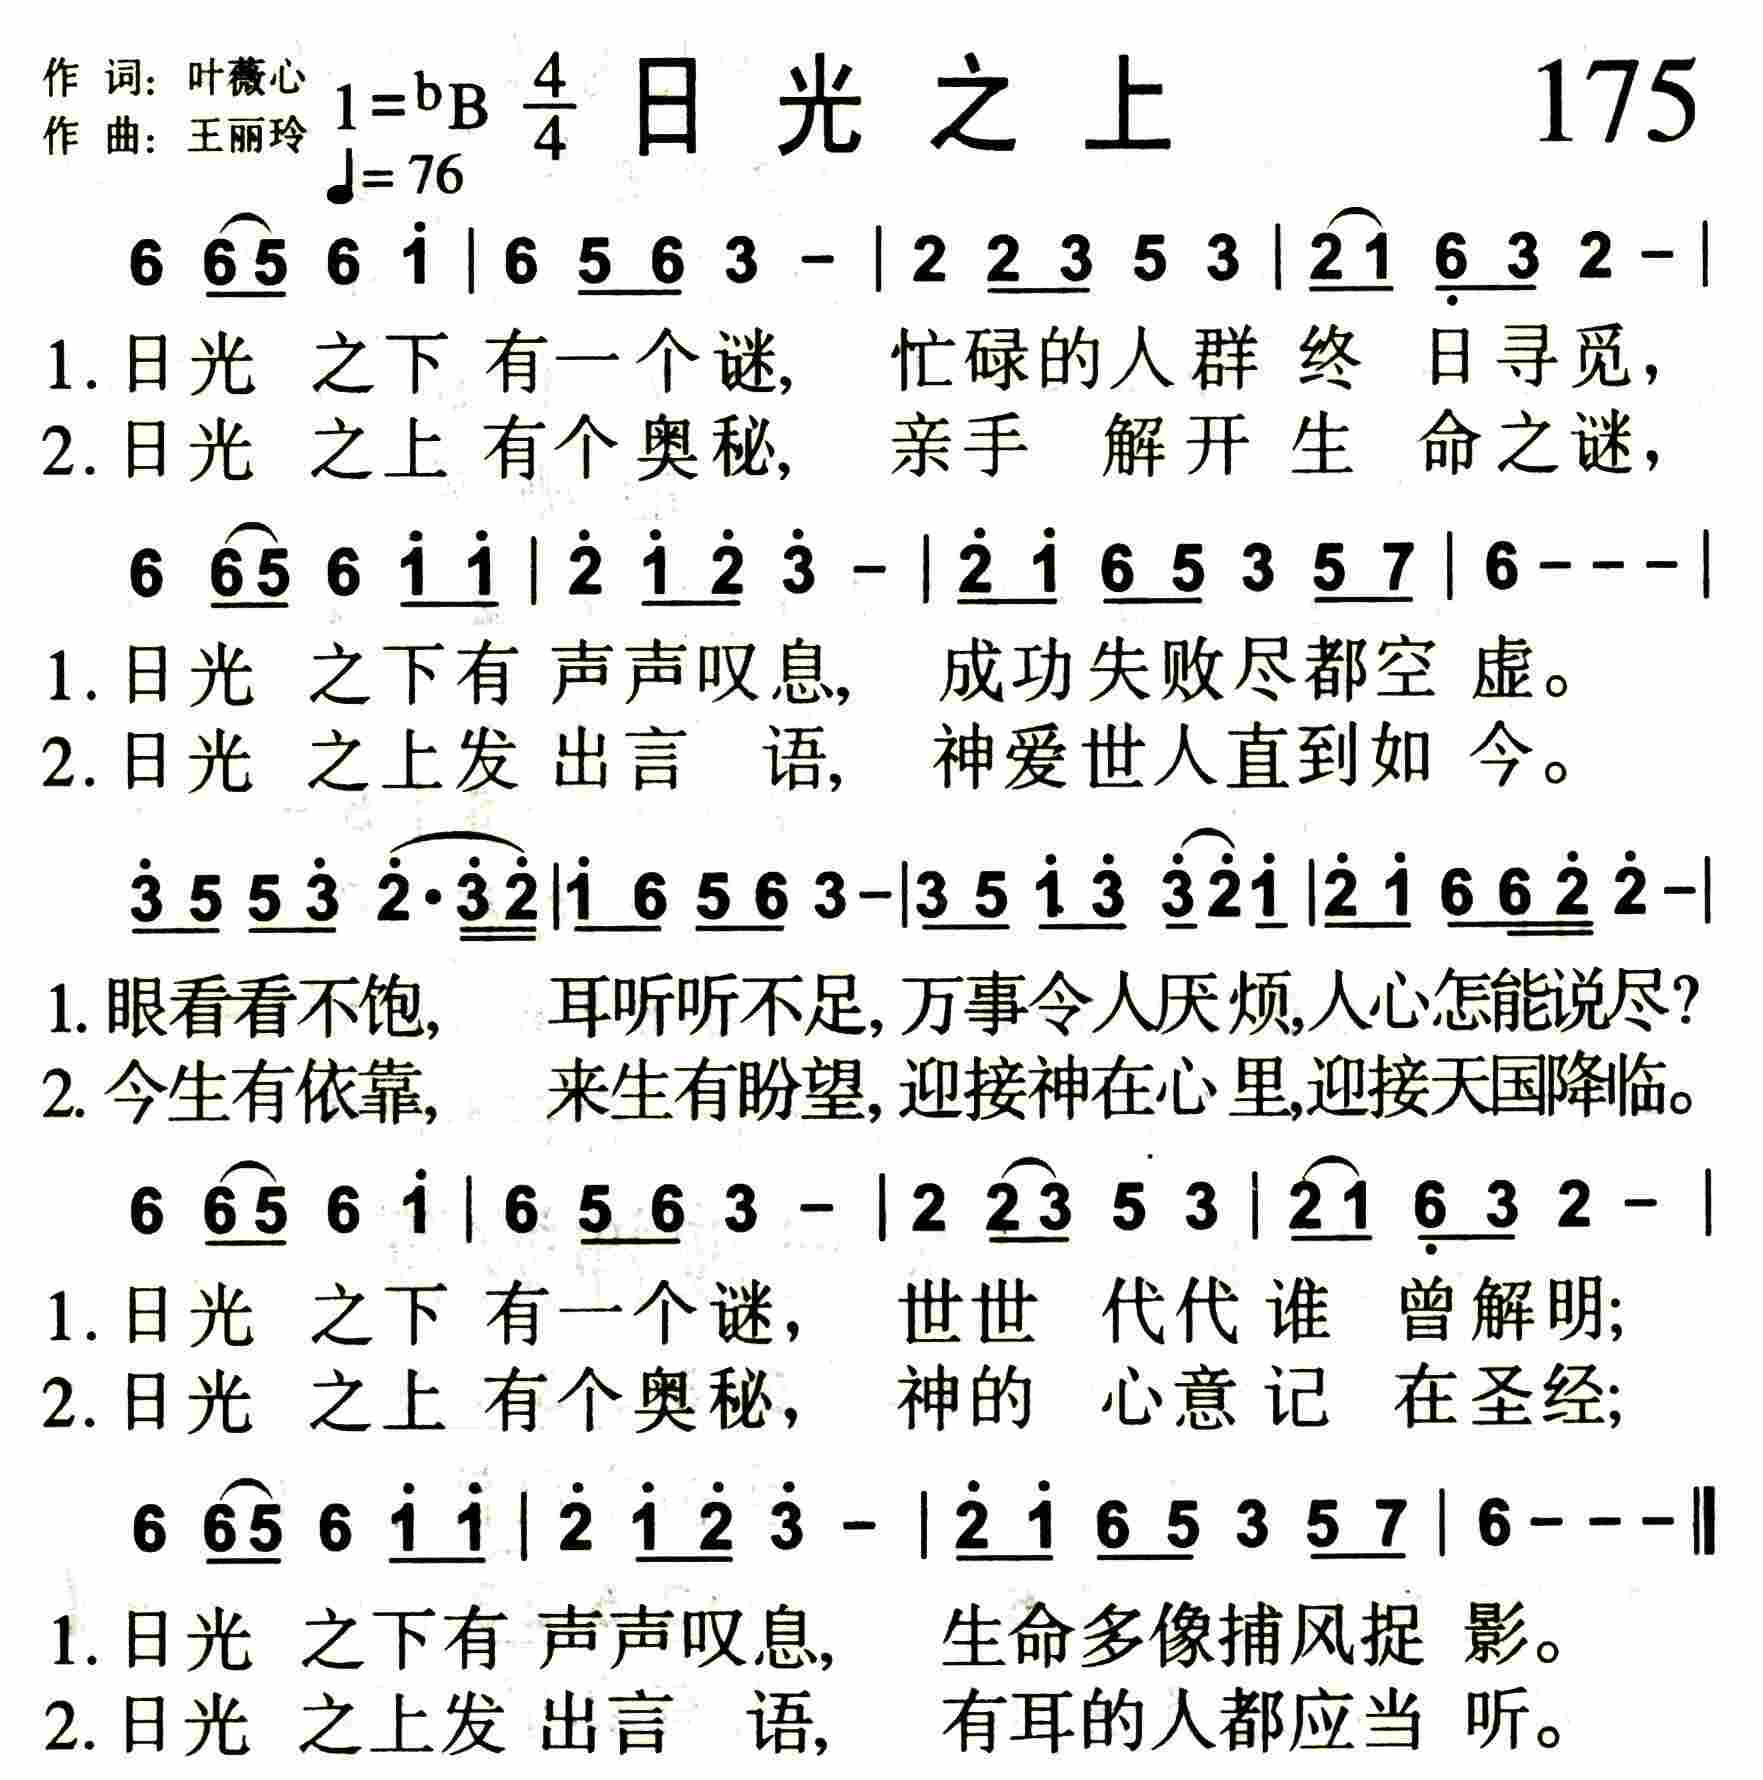 作 词：叶薇心 1=ᵇB 4/4 日光之上 175
作 曲：王丽玲 ♩=76
6 65 6 1̇ | 6 5 6 3 - | 2 2 3 5 3 | 21 6̣ 3 2 - |
1. 日光 之下 有一个谜, 忙碌的人群 终 日寻觅,
2. 日光 之上 有个奥秘, 亲手 解开 生 命之谜,
6 65 6 1̇ 1̇ | 2̇ 1̇ 2̇ 3̇ - | 2̇ 1̇ 6 5 3 5 7 | 6 - - - |
1. 日光 之下有 声声叹息, 成功失败尽都空 虚。
2. 日光 之上发 出言 语, 神爱世人直到如 今。
3̇ 5 5 3̇ 2̇·3̇2̇ | 1̇ 6 5 6 3 - | 3 5 1̇ 3̇ 3̇2̇1̇ | 2̇ 1̇ 6 6 2̇ 2̇ - |
1. 眼看看不饱, 耳听听不足, 万事令人厌烦, 人心怎能说尽?
2. 今生有依靠, 来生有盼望, 迎接神在心里, 迎接天国降临。
6 65 6 1̇ | 6 5 6 3 - | 2 23 5 3 | 21 6̣ 3 2 - |
1. 日光 之下 有一个谜, 世世 代代 谁 曾解明;
2. 日光 之上 有个奥秘, 神的 心意 记 在圣经;
6 65 6 1̇ 1̇ | 2̇ 1̇ 2̇ 3̇ - | 2̇ 1̇ 6 5 3 5 7 | 6 - - - ‖
1. 日光 之下有 声声叹息, 生命多像捕风捉 影。
2. 日光 之上发 出言 语, 有耳的人都应当 听。